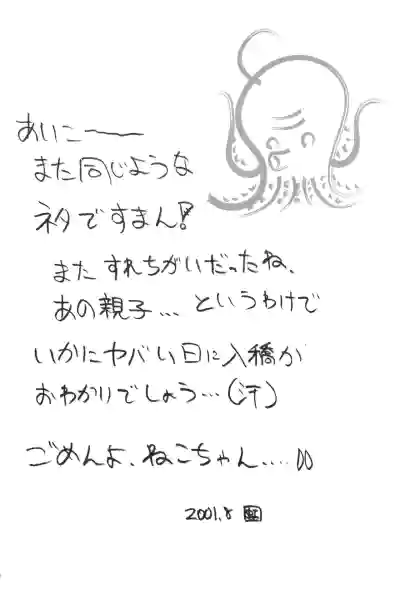 あいこ〜〜
また同じような
ネタですまん!
またすれちがいだったね、
あの親子…というわけで
いかにヤバい日に入稿か
おわかりでしょう…(汗)
ごめんよ、ねこちゃん‥‥
2001.8